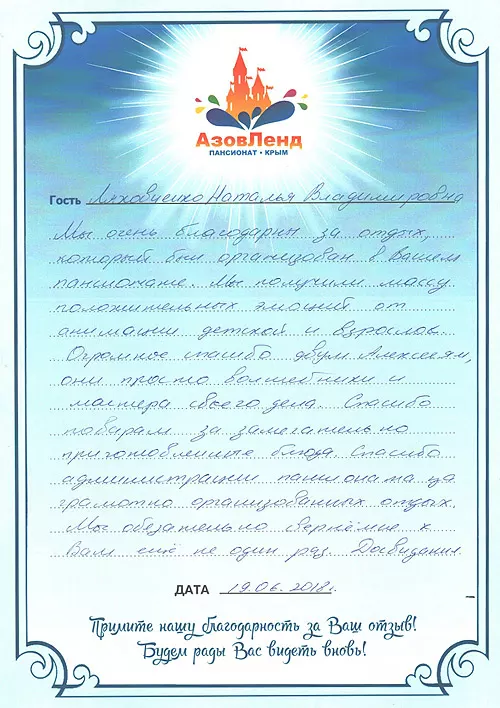 АзовЛенд
ПАНСИОНАТ • КРЫМ
Гость Ляховченко Наталья Владимировна
Мы очень благодарны за отдых,
который был организован в Вашем
пансионате. Мы получили массу
положительных эмоций от
анимации детской и взрослой.
Огромное спасибо двум Алексеям,
они просто волшебники и
мастера своего дела. Спасибо
поварам за замечательно
приготовленные блюда. Спасибо
администрации пансионата за
грамотно организованных отдых.
Мы обязательно вернёмся к
Вам ещё не один раз. Досвидания
ДАТА 19.06.2018г.
Примите нашу благодарность за Ваш отзыв!
Будем рады Вас видеть вновь!